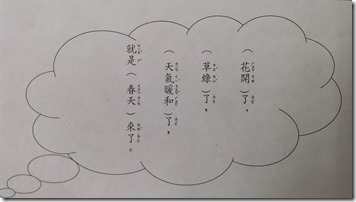 （花開）了，
（草綠）了，
（天氣暖和）了，
就是（春天）來了。